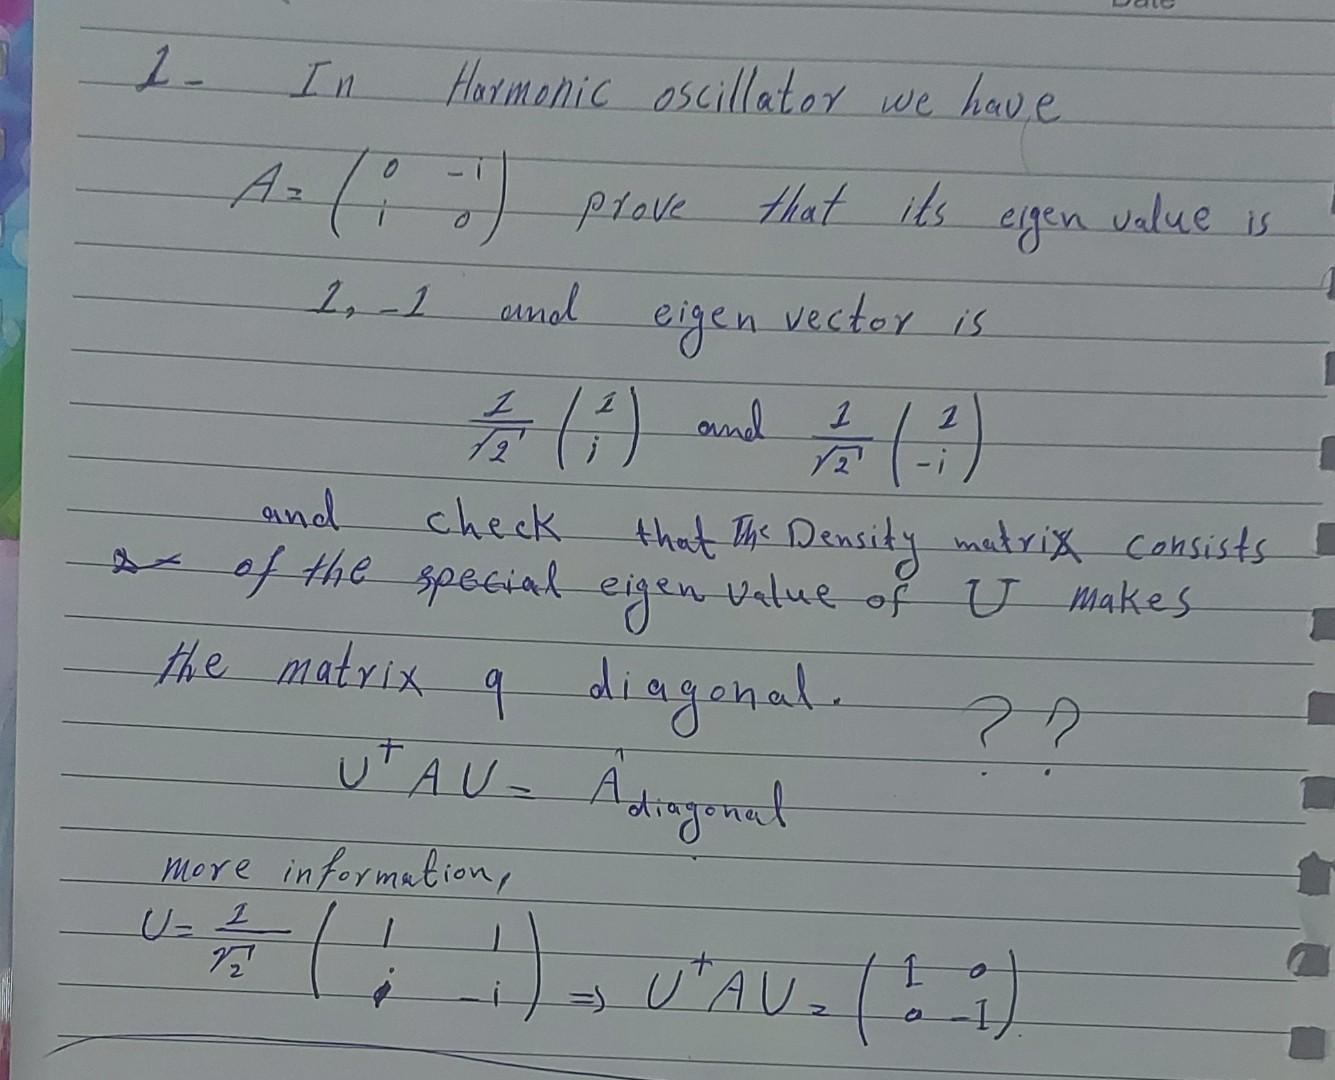 Date
1- In Harmonic oscillator we have
A= ( 0 -i ; i 0 ) prove that its eigen value is
1, -1 and eigen vector is
1/√2 ( 1 ; i ) and 1/√2 ( 1 ; -i )
and check that The Density matrix consists
of the special eigen value of U makes
the matrix q diagonal. ??
U† A U = Â diagonal
more information,
U= 1/√2 ( 1 1 ; i -i ) ⇒ U† A U = ( 1 0 ; 0 -1 )